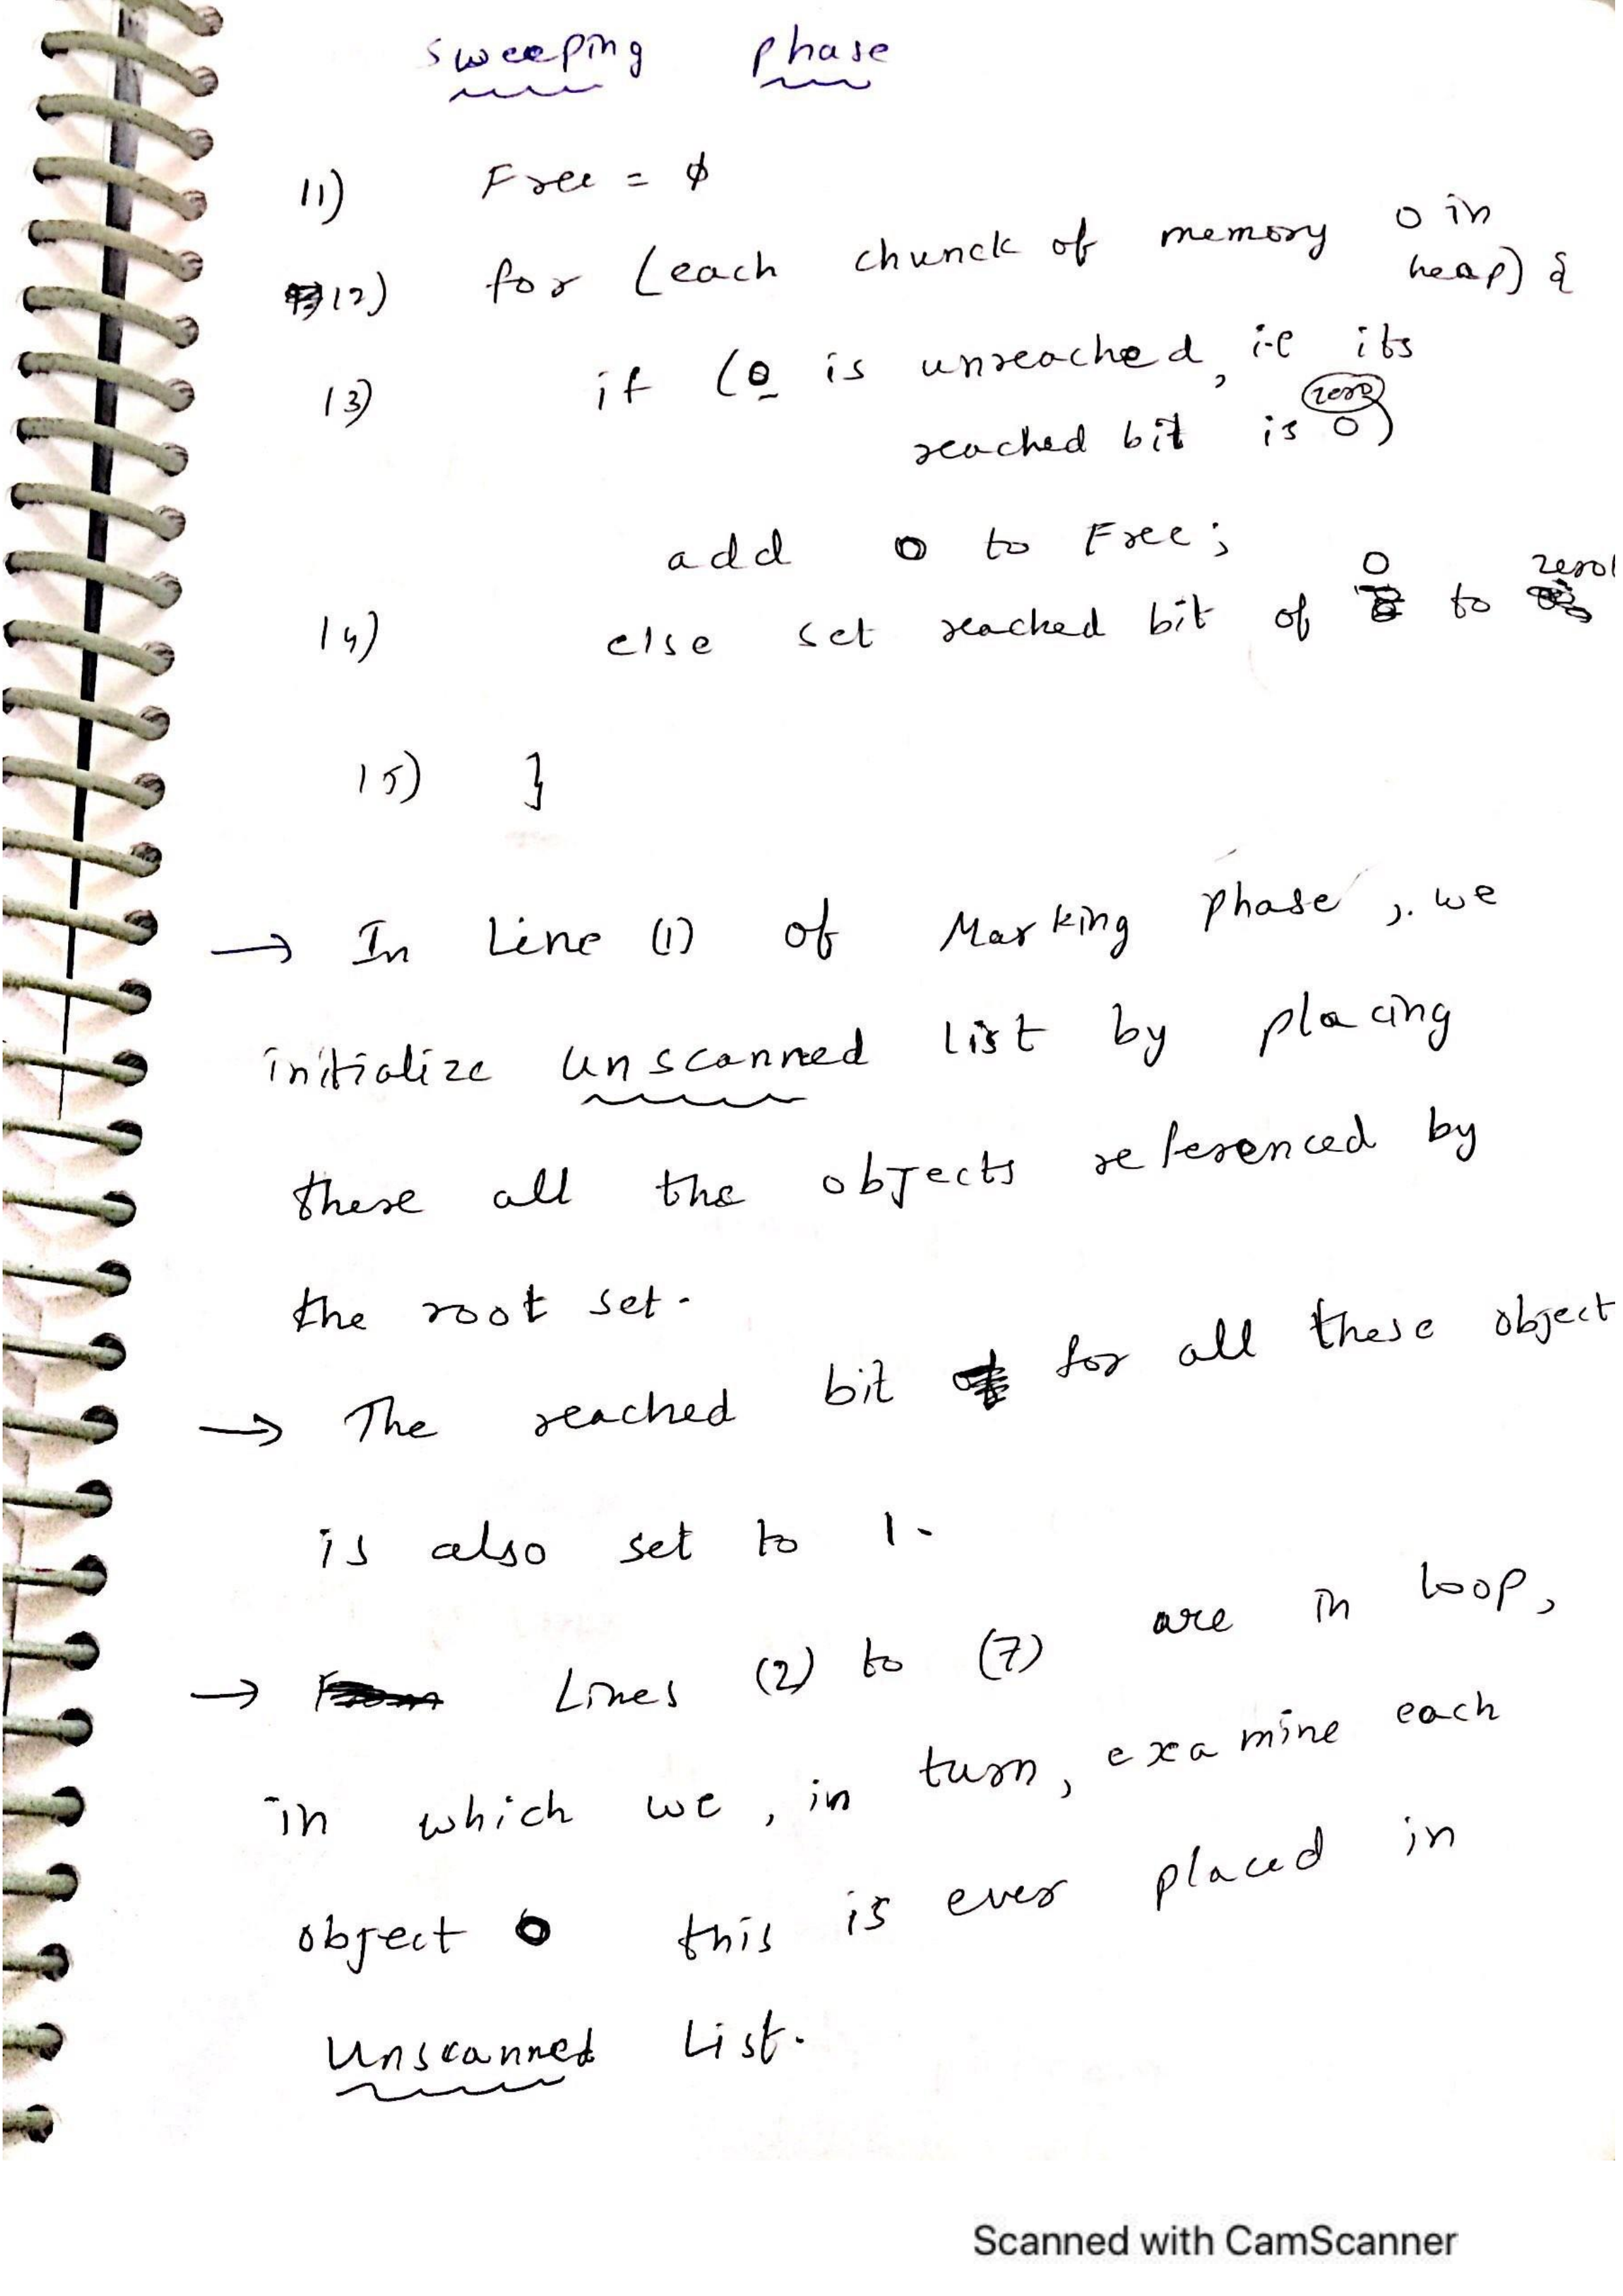 sweeping phase
11) Free = ϕ
12) for (each chunck of memory o in
heap) {
13) if (o is unreached, i-e its
zero
reached bit is 0)
add o to Free;
o zero
14) else set reached bit of to
15) }
→ In Line (1) of Marking phase, we
initialize unscanned list by placing
there all the objects referenced by
the root set.
→ The reached bit for all these object
is also set to 1.
→ Lines (2) to (7) are in loop,
in which we, in turn, examine each
object o this is ever placed in
Unscanned List.
Scanned with CamScanner